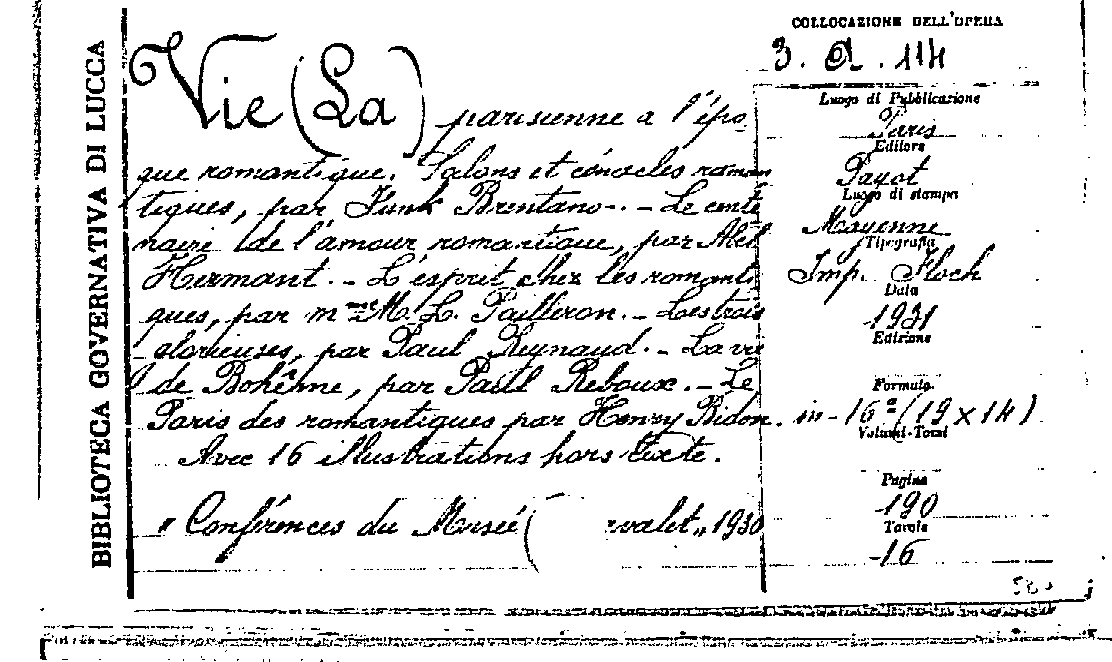 BIBLIOTECA GOVERNATIVA DI LUCCA
COLLOCAZIONE DELL'OPERA
3. a. 114
Vie (La) parisienne a l'épo-
que romantique. Salons et cénacles roman
tiques, par Funk Brentano. - Le cente
naire de l'amour romantique, par Abel
Hermant. - L'esprit chez les romanti
ques, par mme M. L. Pailleron. - Les trois
glorieuses, par Paul Reynaud. - La vie
de Bohême, par Paul Reboux. - Le
Paris des romantiques par Henry Bidon.
Avec 16 illustrations hors texte.
" Conférences du Musée ( rvalet " 1930
Luogo di Pubblicazione
Paris
Editore
Payot
Luogo di stampa
Mayenne
Tipografia
Imp. Floch
Data
1931
Edizione
Formato
in - 16° (19 x 14)
Volumi-Tomi
Pagine
190
Tavole
16